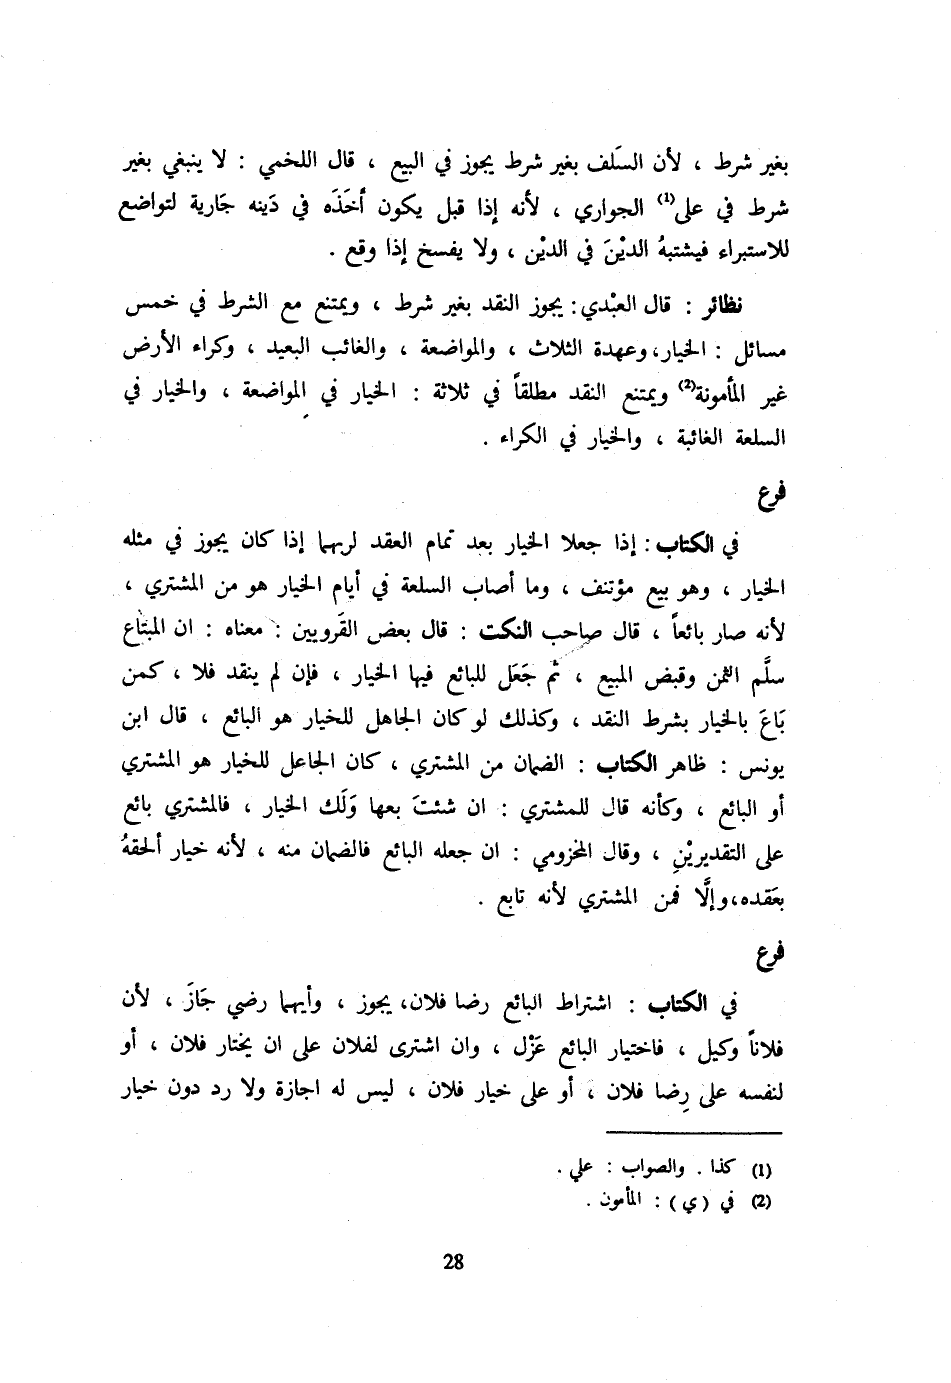 بغير شرط ، لأن السَلف بغير شرط يجوز في البيع ، قال اللخمي : لا ينبغي بغير
شرط في على(1) الجواري ، لأنه إذا قبل يكون أخَذَه في دَينه جَارية لتواضع
للاستبراء فيشتبهُ الديْنَ في الديْن ، ولا يفسخ إذا وقع .
نظائر : قال العبْدي : يجوز النقد بغير شرط ، ويمتنع مع الشرط في خمس
مسائل : الخيار، وعهدة الثلاث ، والمواضعة ، والغائب البعيد ، وكراء الأرض
غير المأمونة(2) ويمتنع النقد مطلقاً في ثلاثة : الخيار في المواضعة ، والخيار في
السلعة الغائبة ، والخيار في الكراء .
فرع
في الكتاب : إذا جعلا الخيار بعد تمام العقد لربهما إذا كان يجوز في مثله
الخيار ، وهو بيع مؤتنف ، وما أصاب السلعة في أيام الخيار هو من المشتري ،
لأنه صار بائعاً ، قال صاحب النكت : قال بعض القَرويين : معناه : ان المبتَاع
سلَّم الثمن وقبض المبيع ، ثم جَعَل للبائع فيها الخيار ، فإن لم ينقد فلا ، كمن
بَاعَ بالخيار بشرط النقد ، وكذلك لو كان الجاهل للخيار هو البائع ، قال ابن
يونس : ظاهر الكتاب : الضمان من المشتري ، كان الجاعل للخيار هو المشتري
أو البائع ، وكأنه قال للمشتري : ان شئتَ بعها وَلَك الخيار ، فالمشتري بائع
على التقديريْنِ ، وقال المخزومي : ان جعله البائع فالضمان منه ، لأنه خيار ألحقهُ
بعَقده، وإلَّا فمن المشتري لأنه تابع .
فرع
في الكتاب : اشتراط البائع رضا فلان، يجوز ، وأيهما رضي جَازَ ، لأن
فلاناً وكيل ، فاختيار البائع عَزْل ، وان اشترى لفلان على ان يختار فلان ، أو
لنفسه على رِضا فلان ، أو على خيار فلان ، ليس له اجازة ولا رد دون خيار
(1) كذا . والصواب : علي .
(2) في ( ي ) : المأمون .
28